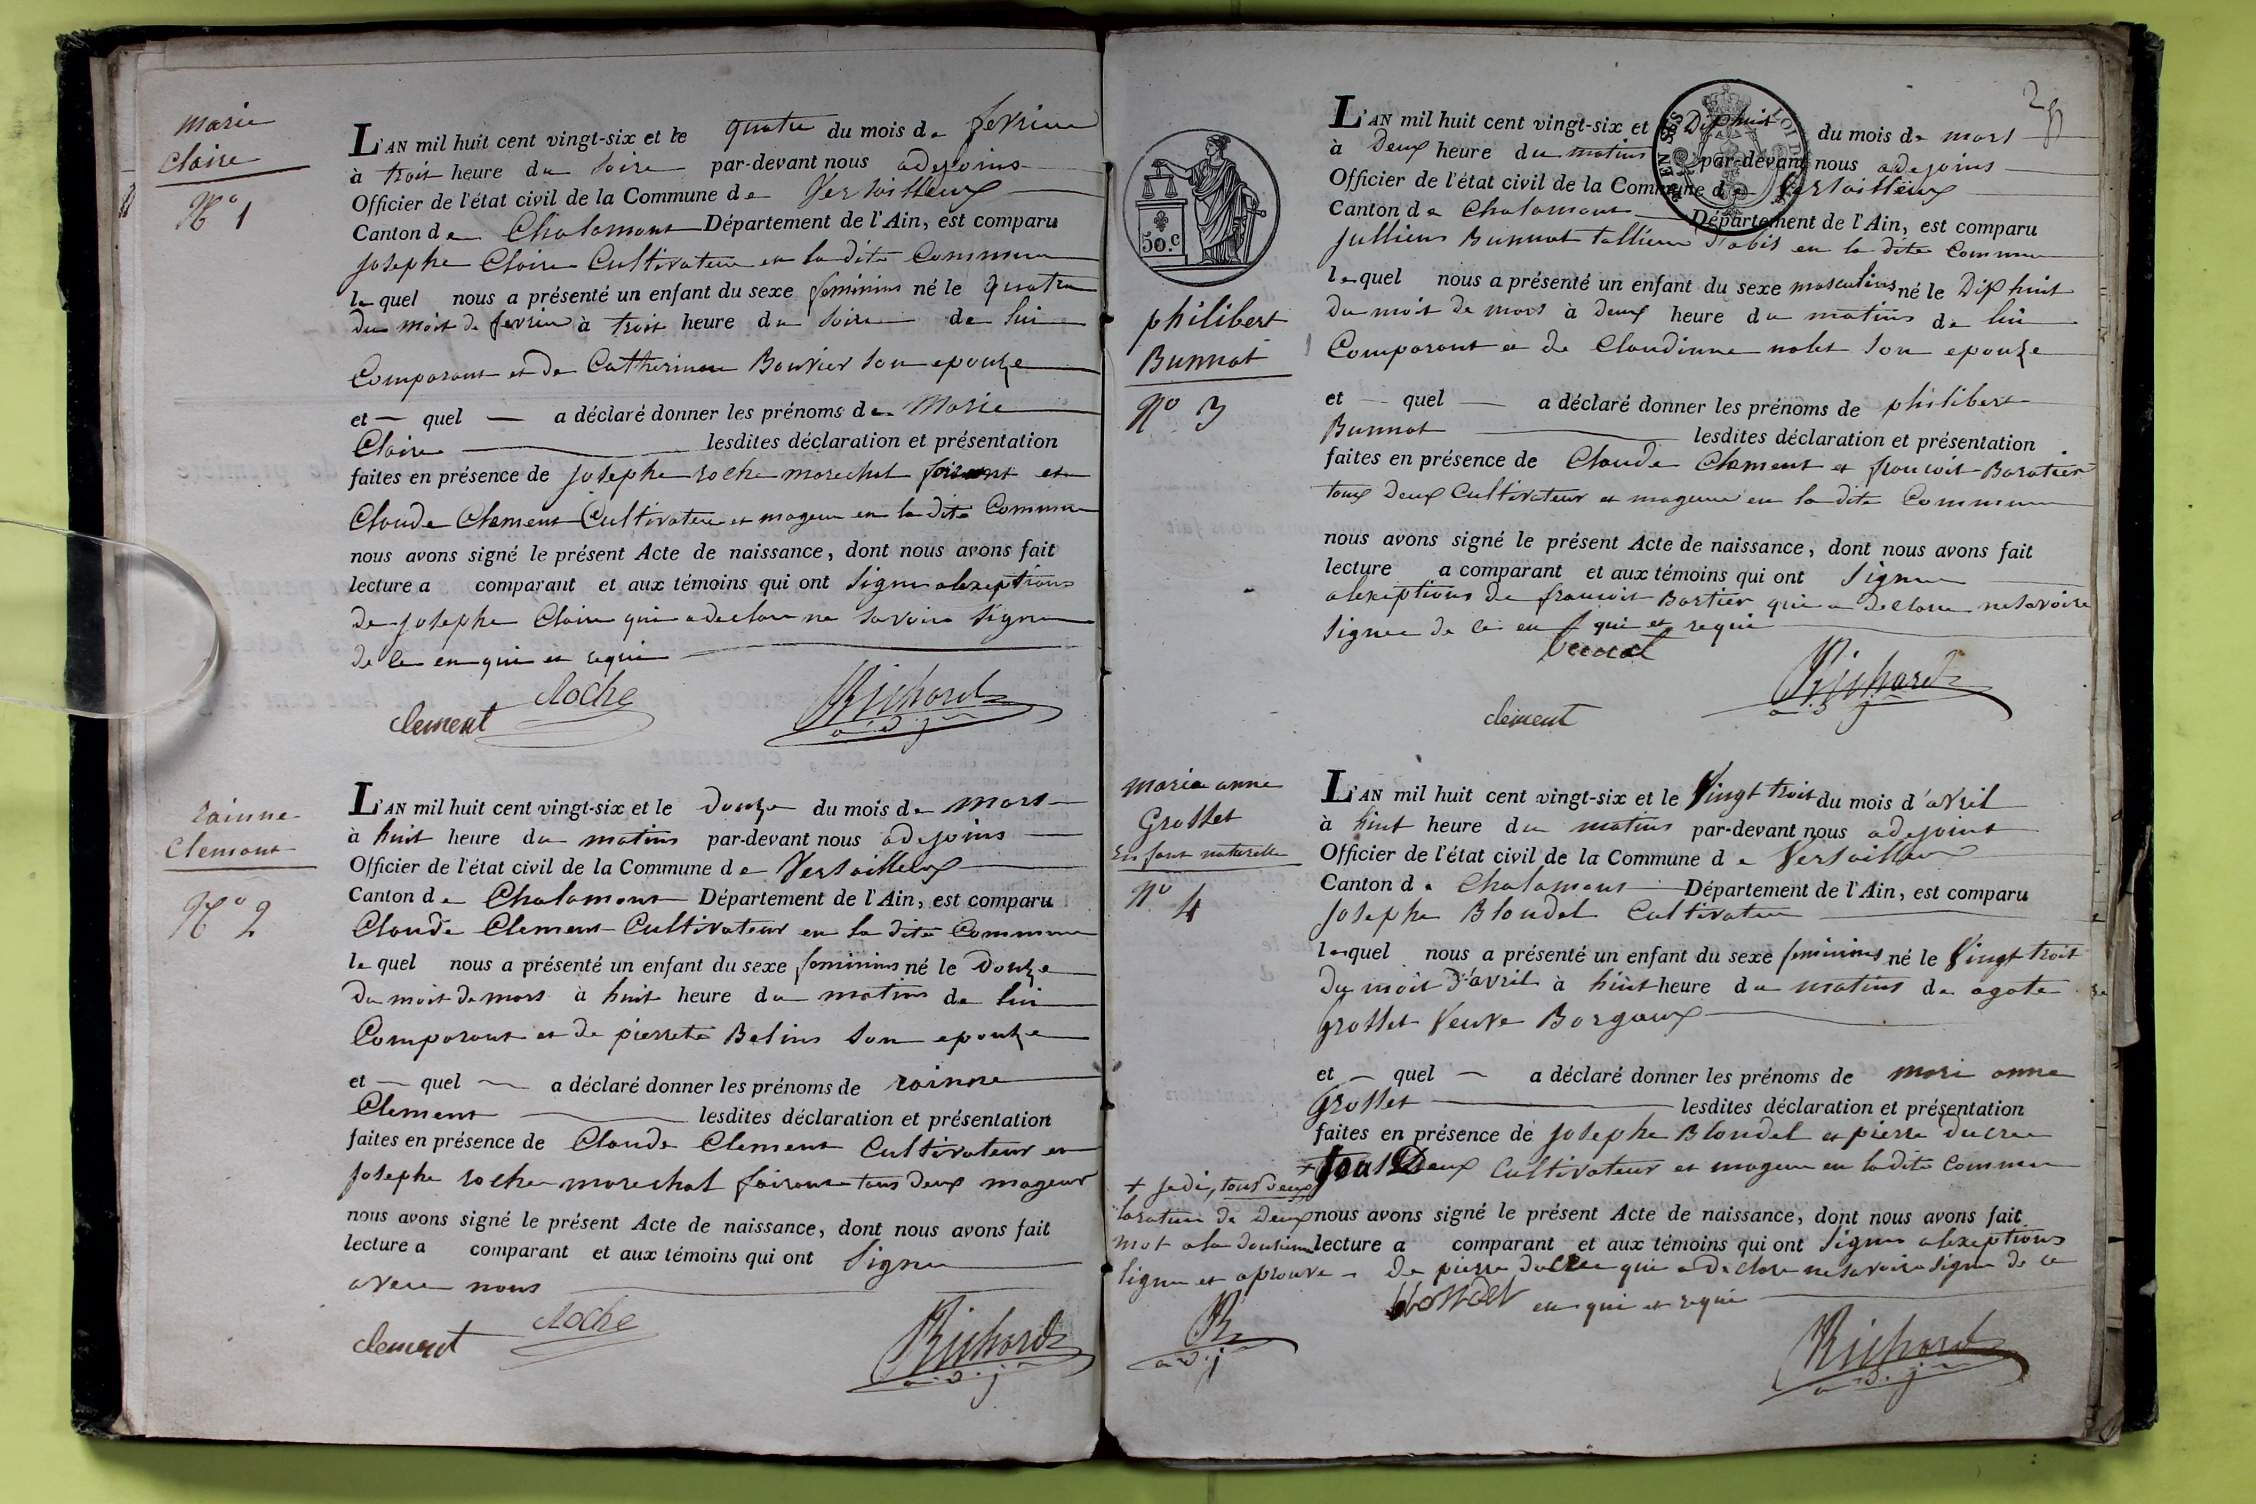 marie
Claire
N° 1
L'AN mil huit cent vingt-six et le quatre du mois de fevrier
à troit heure du soire par-devant nous adejoins
Officier de l'état civil de la Commune de Versailleux
Canton de Chalamont Département de l'Ain, est comparu
Josephe Claire Cultivateur en la dite Commune
lequel nous a présenté un enfant du sexe feminins né le quatre
du moit de fevrier à troit heure du soire de lui
Comparant et de Catherinne Bouvier son epouze
et — quel — a déclaré donner les prénoms de Marie
Claire lesdites déclaration et présentation
faites en présence de Josephe roche marechal fairant et
Claude Clement Cultivateur et mageur en la dite Commune
nous avons signé le présent Acte de naissance, dont nous avons fait
lecture a comparant et aux témoins qui ont signe alexeptions
de josephe Claire qui a declare ne savoire signe
de ce en qui et requi
clement Roche Richard
adj
rainne
Clemant
N° 2
L'AN mil huit cent vingt-six et le douze du mois de mars
à huit heure du matins par-devant nous adejoins
Officier de l'état civil de la Commune de Versailleux
Canton de Chalamont Département de l'Ain, est comparu
Claude Clement Cultivateur en la dite Commune
lequel nous a présenté un enfant du sexe feminins né le Douze
du moit de mars à huit heure du matins de lui
Comparant et de pierrete Belins son epouze
et — quel — a déclaré donner les prénoms de rainne
Clement lesdites déclaration et présentation
faites en présence de Claude Clement Cultivateur et
Josephe roche marechal fairant tous deux mageur
nous avons signé le présent Acte de naissance, dont nous avons fait
lecture a comparant et aux témoins qui ont signe
avec nous
clement Roche Richard
adj
50.c
philibert
Bunnat
N° 3
L'AN mil huit cent vingt-six et Dixhuit du mois de mars
à Deux heure du matins par-devant nous adejoins
Officier de l'état civil de la Commune de Versailleux
Canton de Chalamont Département de l'Ain, est comparu
Jullien Bunnat tallieur d'abis en la dite Commune
lequel nous a présenté un enfant du sexe masculins né le Dixhuit
du moit de mars à deux heure du matins de lui
Comparant et de Claudinne nolet son epouze
et — quel — a déclaré donner les prénoms de philibert
Bunnat lesdites déclaration et présentation
faites en présence de Claude Clement et francoit Baratier
tous Deux Cultivateur et mageur en la dite Commune
nous avons signé le présent Acte de naissance, dont nous avons fait
lecture a comparant et aux témoins qui ont signe
alexeptions de francoit Bartier qui a declare ne savoire
signee de ce en qui et requi
Richard
adj
clement
marie anne
Grosset
enfant naturelle
N° 4
L'AN mil huit cent vingt-six et le Vingt troit du mois d'avril
à huit heure du matins par-devant nous adejoint
Officier de l'état civil de la Commune de Versailleux
Canton de Chalamont Département de l'Ain, est comparu
Josephe Blondel Cultivateur
lequel nous a présenté un enfant du sexe feminins né le Vingt troit
du moit d'avril à huit heure du matins de agate
grosset Veuve Borgaux
et — quel — a déclaré donner les prénoms de mari anne
Grosset lesdites déclaration et présentation
faites en présence de Josephe Blondel et pierre ducree
+ tous Deux Cultivateur et mageur en la dite Commune
nous avons signé le présent Acte de naissance, dont nous avons fait
lecture a comparant et aux témoins qui ont signe alexeptions
de pierre ducree qui a declare ne savoire signe de ce
blondel en qui et requi
Richard
adj
+ je di, tous deux
de Deux
mot a la
ligne et aprouve
R
adj